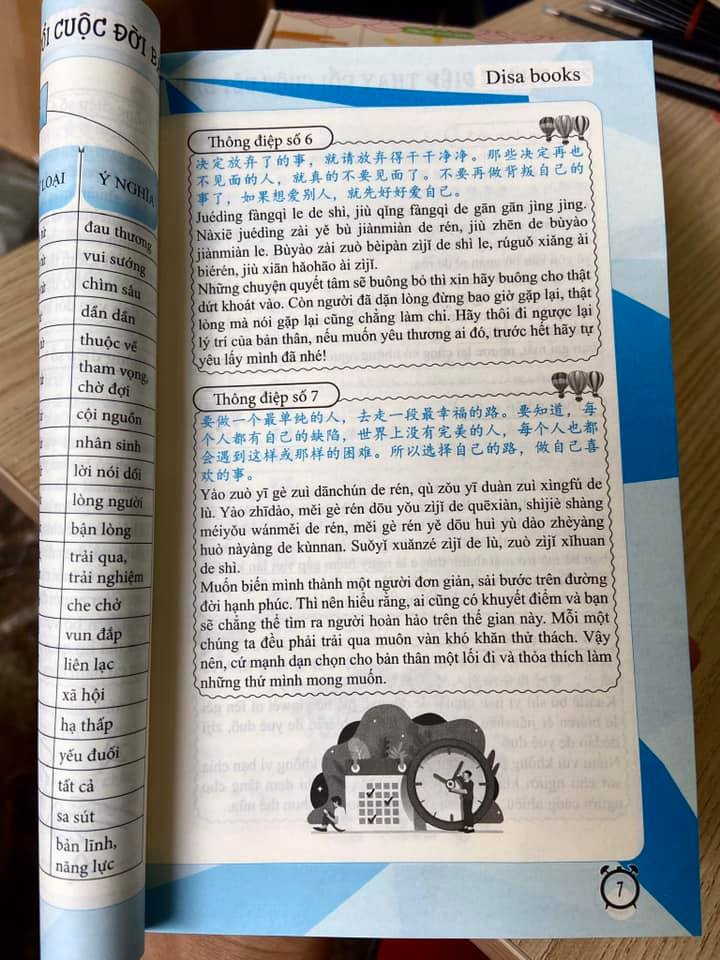 ỔI CUỘC ĐỜI B
LOẠI
Ý NGHĨA
đau thương
vui sướng
chìm sâu
dần dần
thuộc về
tham vọng,
chờ đợi
cội nguồn
nhân sinh
lời nói dối
lòng người
bận lòng
trải qua,
trải nghiệm
che chở
vun đắp
liên lạc
xã hội
hạ thấp
yếu đuối
tất cả
sa sút
bản lĩnh,
năng lực
Disa books
Thông điệp số 6
决定放弃了的事，就请放弃得干干净净。那些决定再也
不见面的人，就真的不要见面了。不要再做背叛自己的
事了，如果想爱别人，就先好好爱自己。
Juédìng fàngqì le de shì, jiù qǐng fàngqì de gān gān jìng jìng.
Nàxiē juédìng zài yě bù jiànmiàn de rén, jiù zhēn de bùyào
jiànmiàn le. Bùyào zài zuò bèipàn zìjǐ de shì le, rúguǒ xiǎng ài
biérén, jiù xiān hǎohāo ài zìjǐ.
Những chuyện quyết tâm sẽ buông bỏ thì xin hãy buông cho thật
dứt khoát vào. Còn người đã dặn lòng đừng bao giờ gặp lại, thật
lòng mà nói gặp lại cũng chẳng làm chi. Hãy thôi đi ngược lại
lý trí của bản thân, nếu muốn yêu thương ai đó, trước hết hãy tự
yêu lấy mình đã nhé!
Thông điệp số 7
要做一个最单纯的人，去走一段最幸福的路。要知道，每
个人都有自己的缺陷，世界上没有完美的人，每个人也都
会遇到这样或那样的困难。所以选择自己的路，做自己喜
欢的事。
Yào zuò yī gè zuì dānchún de rén, qù zǒu yī duàn zuì xìngfú de
lù. Yào zhīdào, měi gè rén dōu yǒu zìjǐ de quēxiàn, shìjiè shàng
méiyǒu wánměi de rén, měi gè rén yě dōu huì yù dào zhèyàng
huò nàyàng de kùnnan. Suǒyǐ xuǎnzé zìjǐ de lù, zuò zìjǐ xǐhuan
de shì.
Muốn biến mình thành một người đơn giản, sải bước trên đường
đời hạnh phúc. Thì nên hiểu rằng, ai cũng có khuyết điểm và bạn
sẽ chẳng thể tìm ra người hoàn hảo trên thế gian này. Mỗi một
chúng ta đều phải trải qua muôn vàn khó khăn thử thách. Vậy
nên, cứ mạnh dạn chọn cho bản thân một lối đi và thỏa thích làm
những thứ mình mong muốn.
7